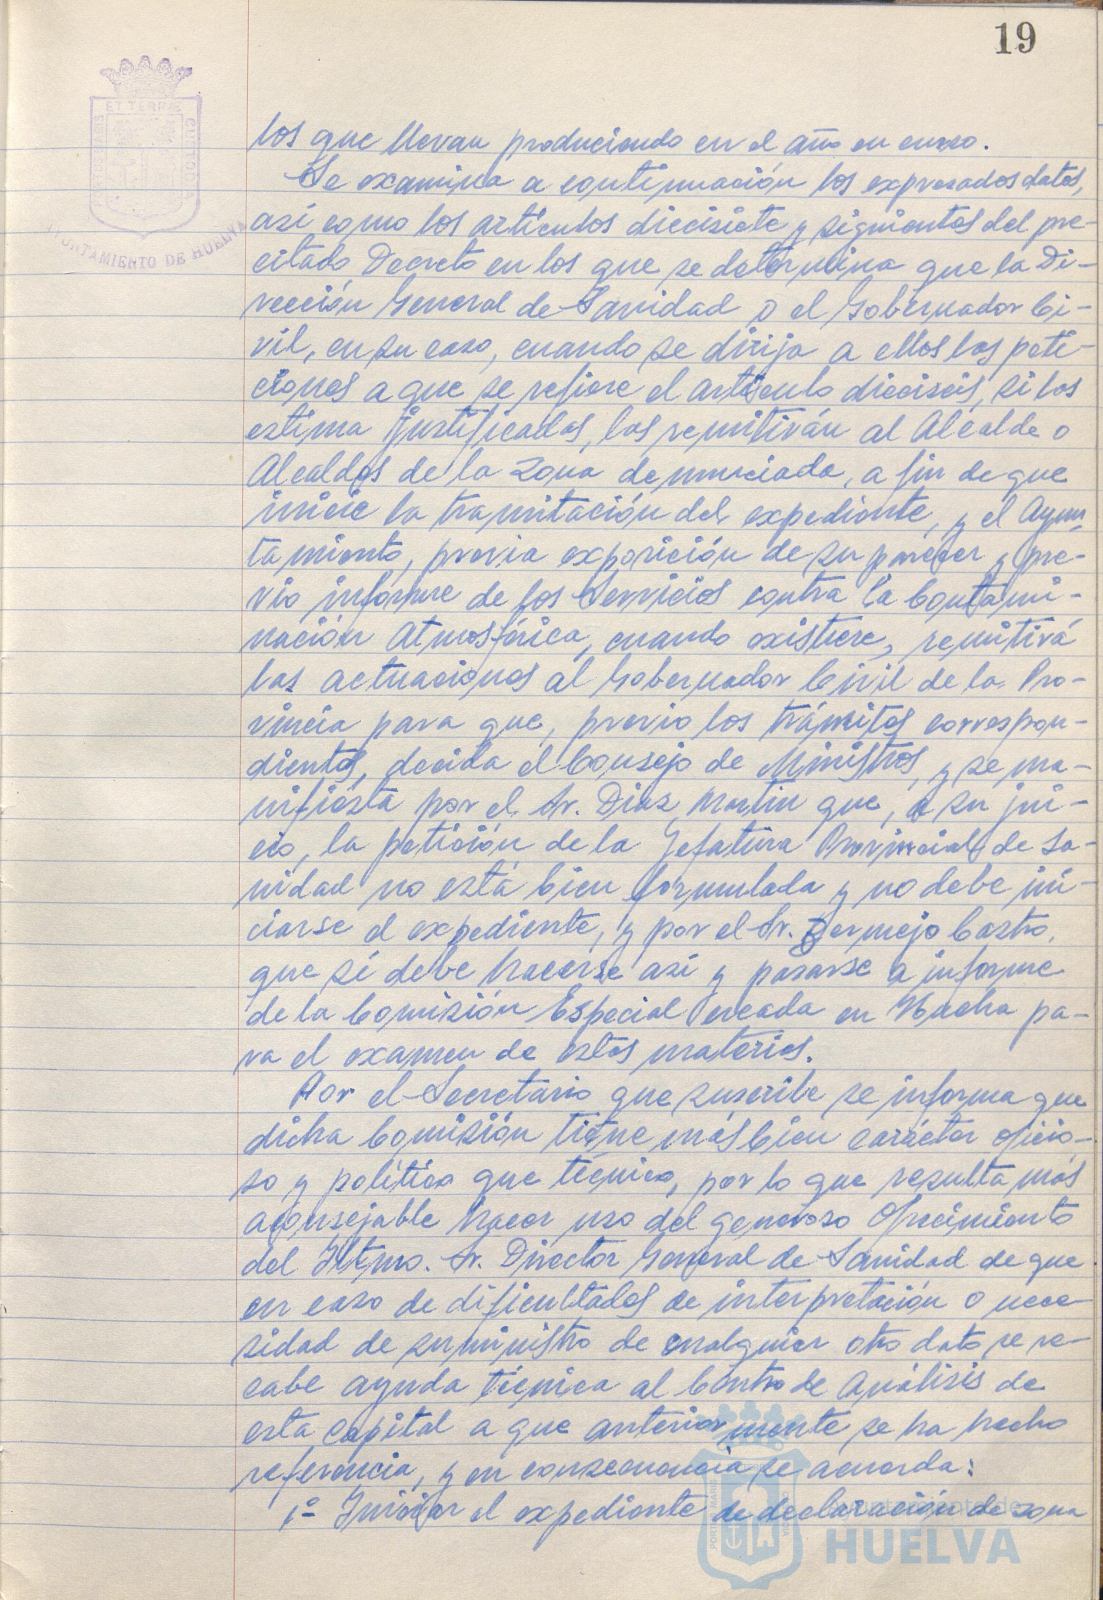 19
ET TERRAE
CUSTODIA
AYUNTAMIENTO DE HUELVA
los que llevan produciendo en el año en curso.
Se examina a continuación los expresados datos,
así como los artículos diecisiete y siguientes del pre-
citado Decreto en los que se determina que la Di-
rección General de Sanidad o el Gobernador Ci-
vil, en su caso, cuando se dirija a ellos las peti-
ciones a que se refiere el artículo dieciseis, si los
estima justificadas, las remitirán al Alcalde o
Alcaldes de la Zona denunciada, a fin de que
inicie la tramitación del expediente, y el Ayun-
tamiento, previa exposición de su parecer y pre-
vio informe de los Servicios contra la Contami-
nación Atmosférica, cuando existiere, remitirá
las actuaciones al Gobernador Civil de la Pro-
vincia para que, previo los trámites correspon-
dientes, decida el Consejo de Ministros, y se ma-
nifiesta por el Sr. Diaz Martin que, a su jui-
cio, la petición de la Jefatura Provincial de Sa-
nidad no está bien formulada y no debe ini-
ciarse el expediente, y por el Sr. Bermejo Castro,
que sí debe hacerse así y pasarse a informe
de la Comisión Especial creada en Huelva pa-
ra el examen de estas materias.
Por el Secretario que suscribe se informa que
dicha Comisión tiene más bien carácter oficio-
so y político que técnico, por lo que resulta más
aconsejable hacer uso del generoso ofrecimiento
del Iltmo. Sr. Director General de Sanidad de que
en caso de dificultades de interpretación o nece-
sidad de suministro de cualquier otro dato se re-
cabe ayuda técnica al Centro de Análisis de
esta capital a que anteriormente se ha hecho
referencia, y en consecuencia se acuerda:
1º- Iniciar el expediente de declaración de zona
Ayuntamiento de
HUELVA